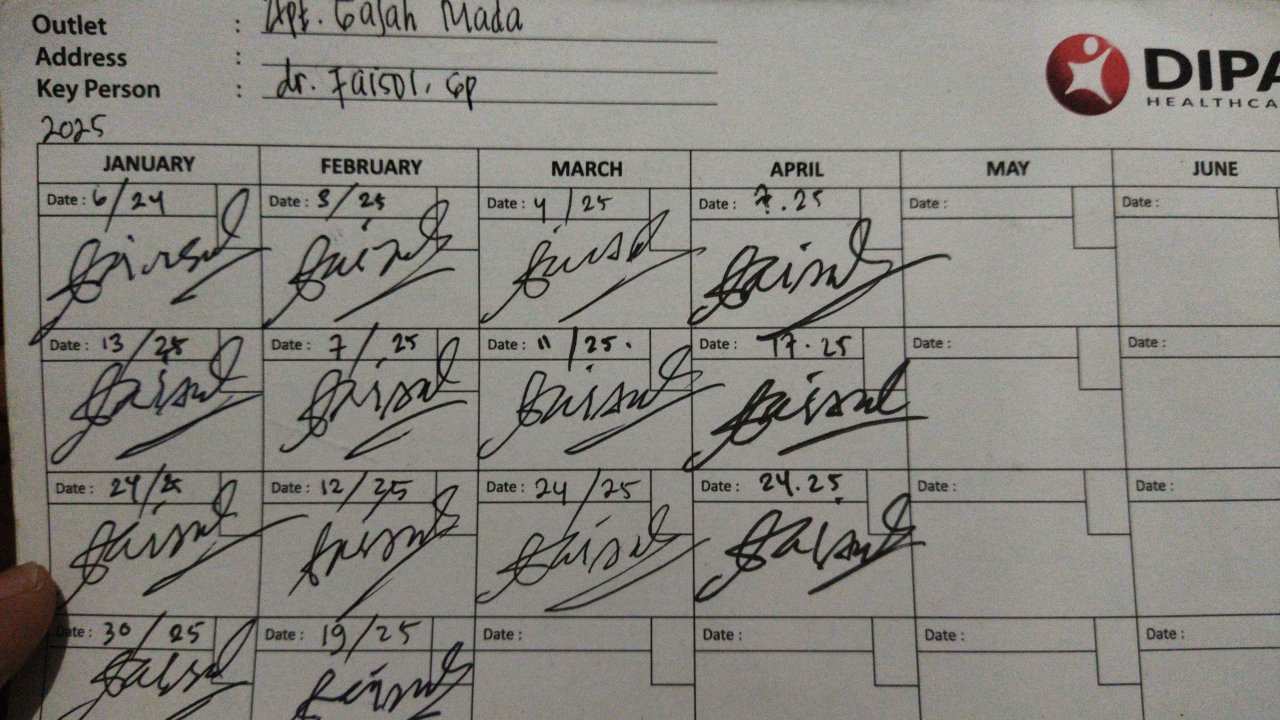 Outlet : Apt. Gajah Mada
Address :
Key Person : dr. Faisol, Gp
2025
DIPA
HEALTHCA
JANUARY FEBRUARY MARCH APRIL MAY JUNE
Date : 6/24 Date : 3/25 Date : 4/25 Date : 7.25 Date : Date :
Faisol Faisol Faisol Faisol
Date : 13/25 Date : 7/25 Date : 11/25. Date : 17.25 Date : Date :
Faisol Faisol Faisol Faisol
Date : 24/25 Date : 12/25 Date : 24/25 Date : 24.25 Date : Date :
Faisol Faisol Faisol Faisol
Date : 30/25 Date : 19/25 Date : Date : Date : Date :
Faisol Faisol